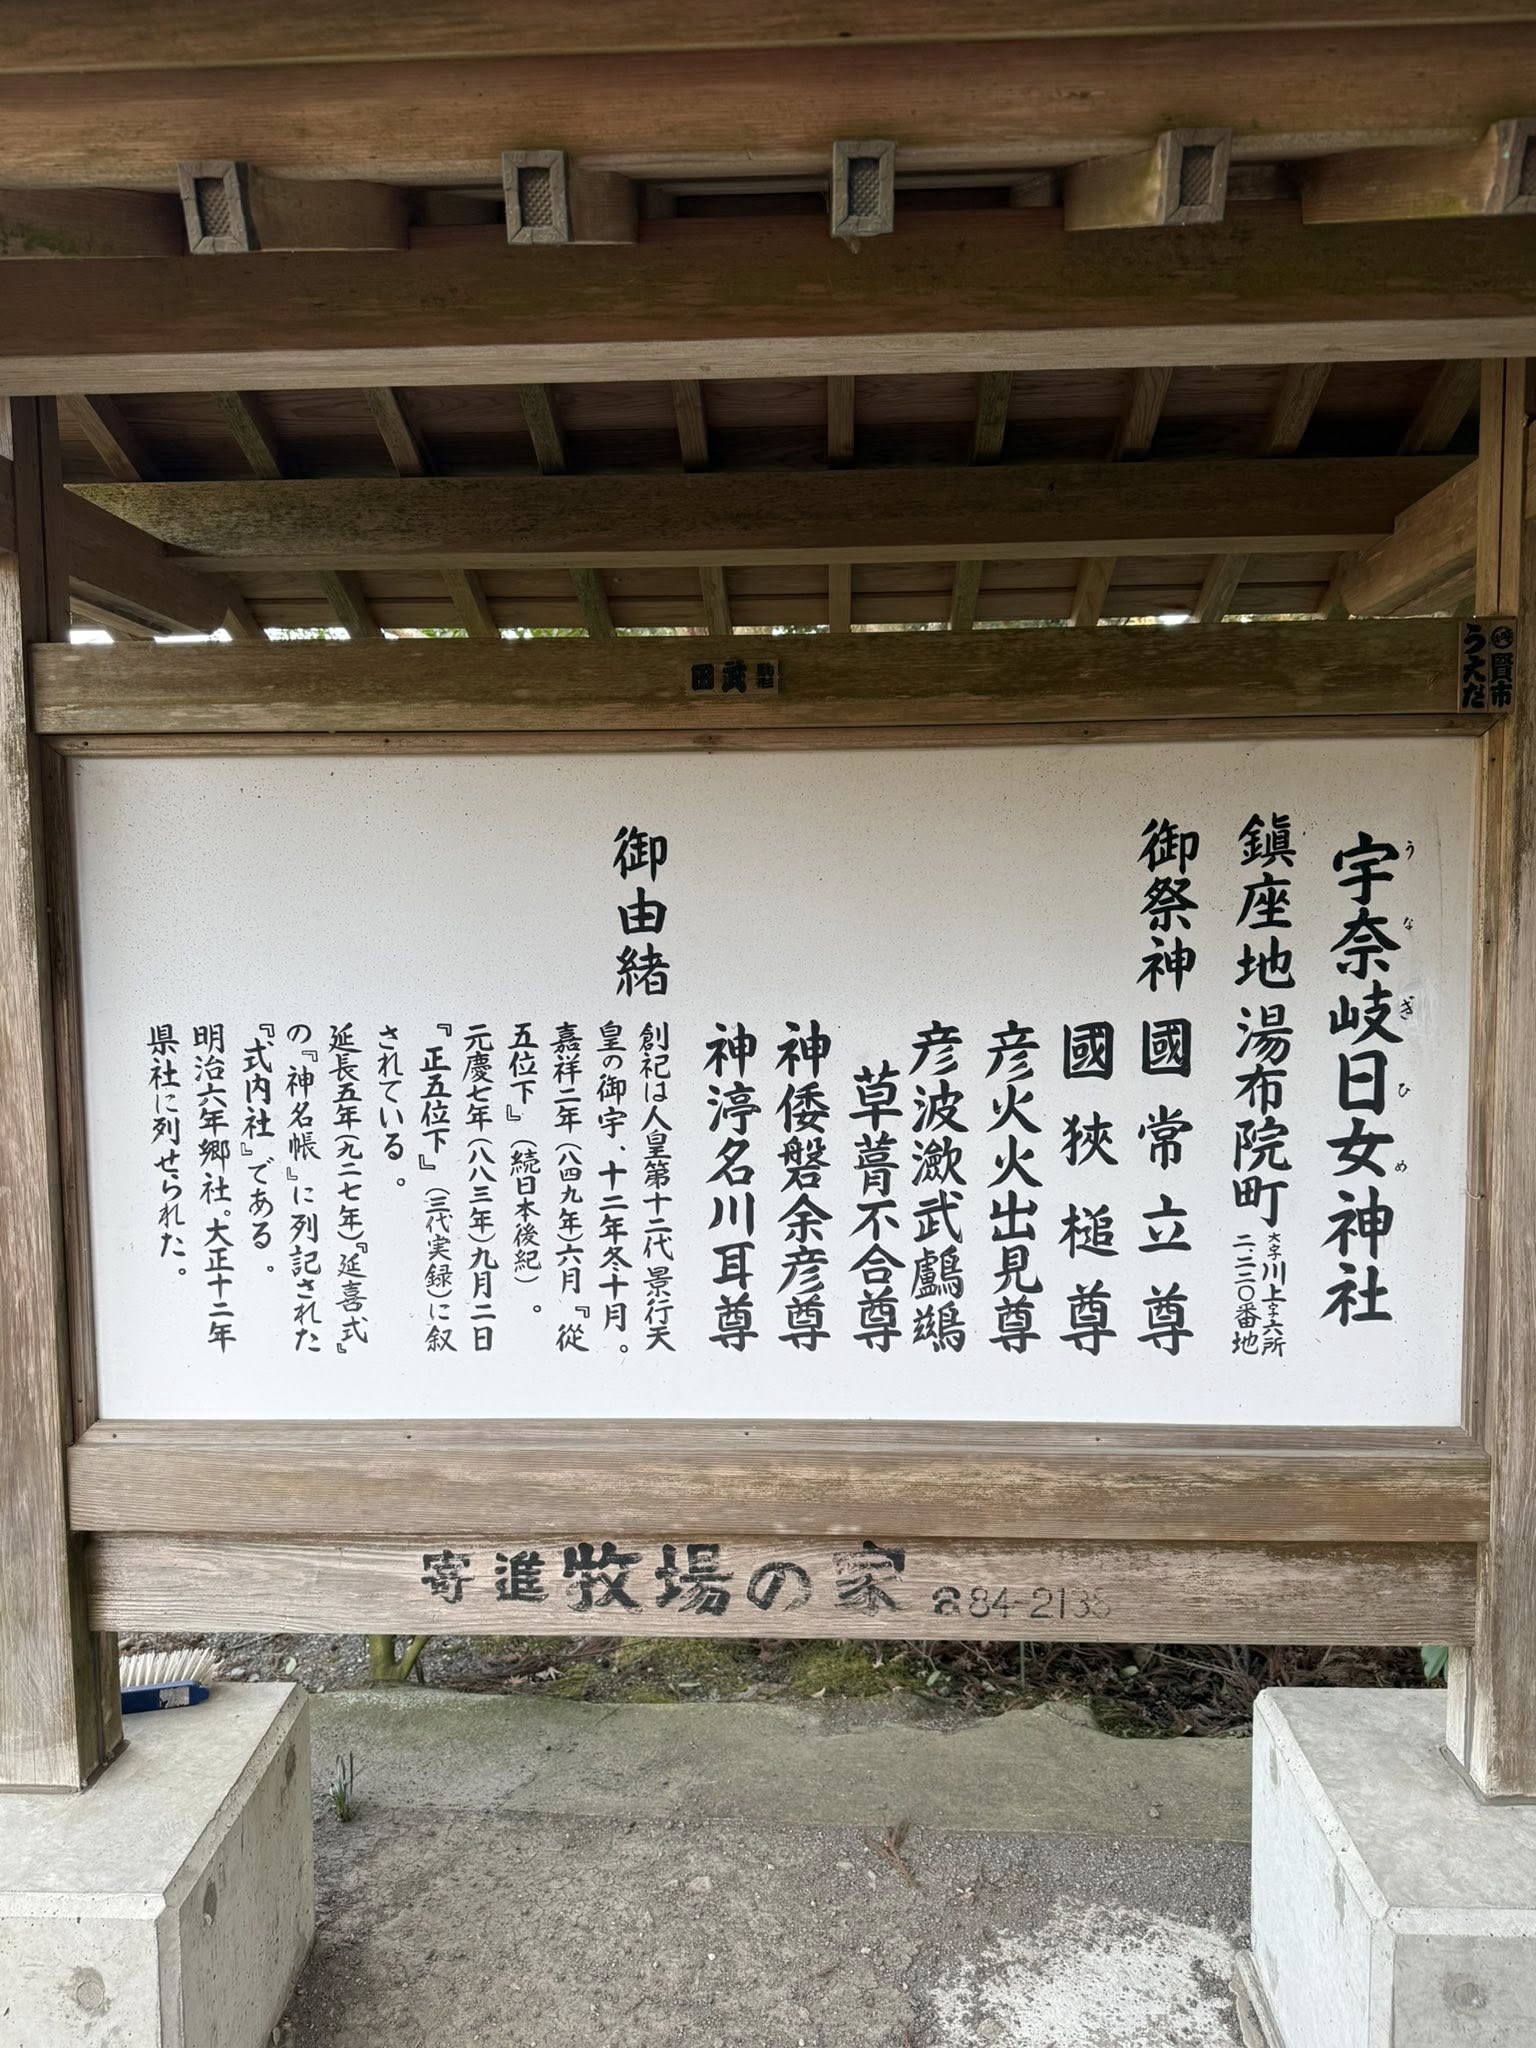 宇奈岐日女神社
うなぎひめ
鎮座地湯布院町大字川上字六所
二、二二〇番地
御祭神 國常立尊
國狹槌尊
彦火火出見尊
彦波瀲武鸕鷀
草葺不合尊
神倭磐余彦尊
神渟名川耳尊
御由緒
創祀は人皇第十二代景行天
皇の御宇、十二年冬十月。
嘉祥二年(八四九年)六月『從
五位下』(続日本後紀)。
元慶七年(八八三年)九月二日
『正五位下』(三代実録)に叙
されている。
延長五年(九二七年)『延喜式』
の『神名帳』に列記された
『式内社』である。
明治六年郷社。大正十二年
県社に列せられた。
賢市
うえだ
武田
寄進牧場の家 ☎84-2138